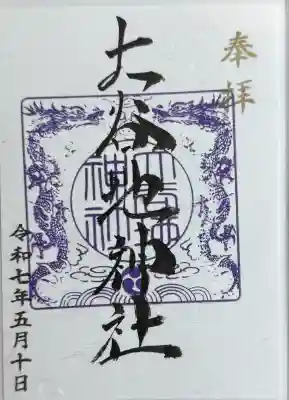 奉拝
大谷地神社
令和七年五月十日